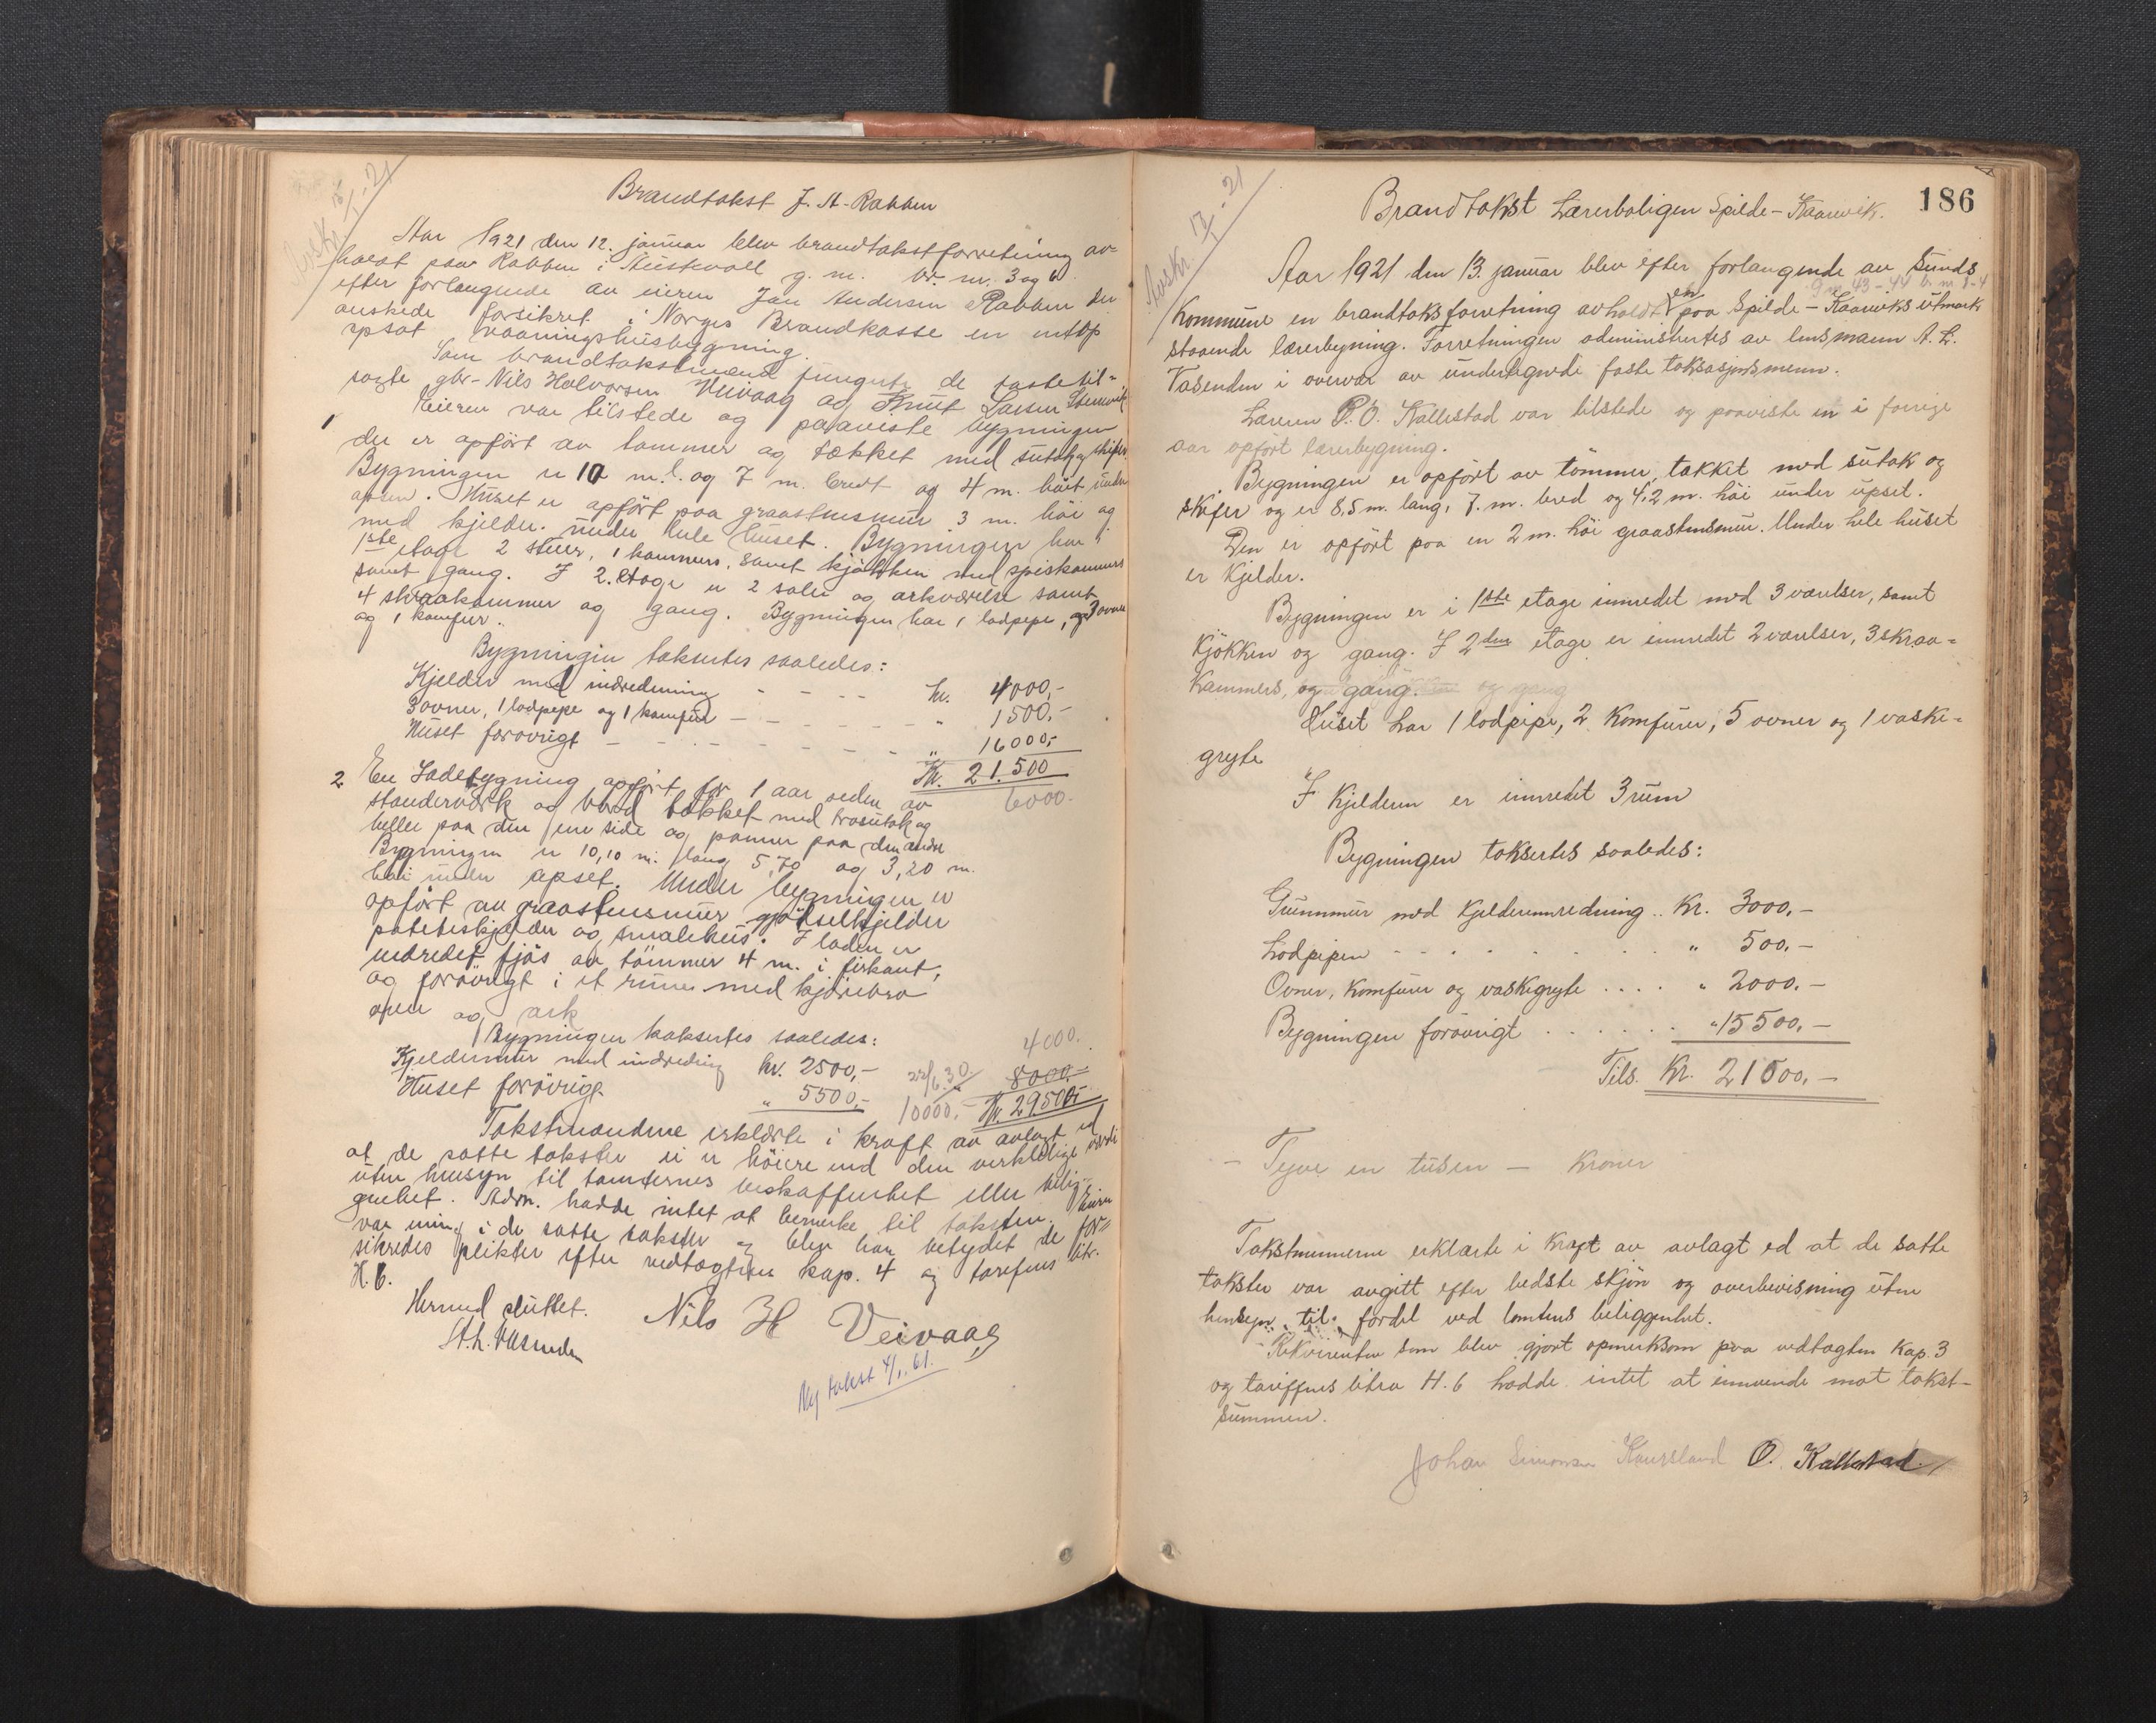 Brandtakst J. A. Rabben
Avskr. 13/1.21
Aar 1921 den 12. januar blev brandtakstforretning av-
holdt paa Rabben i Austevoll g. nr. br. nr. 3 og 6
efter forlangende av eieren Jan Andersen Rabben der
ønskede forsikret i Norges Brandkasse en nettop
opsat vaaningshusbygning.
Som brandtakstmænd fungerte de faste til-
sagte gbr. Nils Halvorsen Veivaag og Knut Larsen Stenevik
1 Eieren var tilstede og paaviste bygningen
der er opført av tømmer og tækket med sutak og skifer
Bygningen er 10 m. l. og 7 m. bredt og 4 m. høit under
opsen. Huset er opført paa graastensmur 3 m. høi og
med kjelder under hele huset. Bygningen har i
1ste etage 2 stuer, 1 kammers, samt kjøkken med spiskammers
samt gang. I 2. etage er 2 saler og arkværelse samt
4 skraakammer og gang. Bygningen har 1 lodpipe, og 3 ovner
og 1 komfur.
Bygningen taksertes saaledes:
Kjelder med indredning - - - - kr. 4000,-
3 ovner, 1 lodpipe og 1 komfur - - - - - - " 1500,-
Huset forøvrigt - - - - - - - - " 16000,-
Kr. 21.500
6000.
2 En Ladebygning opført for 1 aar siden av
standerværk og bord tækket med trosutak og
heller paa den ene side og panner paa den andre
Bygningen er 10,10 m. lang 5,70 og 3,20 m.
høi under opset. Under bygningen er
opført av graastensmur gjødselkjelder
poteteskjelder og smalehus. I laden er
indredet fjøs av tømmer 4 m. i firkant,
og forøvrigt i et rum med kjørebro
open og ark
Bygningen taksertes saaledes:
4000.
Kjeldermur med indreding kr. 2500,- 22/6.30. 8000,-
Huset forøvrigt " 5500,- 10000.- Kr. 29500,-
Takstmændene erklærte i kraft av avlagt ed
at de satte takster ei er høiere end den verkelige værdi
uten hensyn til tomternes beskaffenhet eller belig-
genhet. Adm. hadde intet at bemerke til taksten. Eieren
var enig i de satte takster og blev han betydet de for-
sikredes plikter efter vedtægtens kap. 4 og tarifens litr.
H. 6.
Hermed sluttet. Nils H Veivaag
A. L. Vasenden
Ny takst 4/1.61.
186
Brandtakst Lærerboligen Spilde - Kaarevik.
Avskr. 17/1.21
Aar 1921 den 13. januar blev efter forlangende av Sunds
g nr. 43-44 b. nr. 1-4
Kommune en brandtaksforretning avholdt en paa Spilde - Kaareviks utmark
staaende lærerbygning. Forretningen administrertes av lensmann A. L.
Vasenden i overvær av undertegnede faste taksasjonsmenn.
Læreren P. O. Kallestad var tilstede og paaviste en i forrige
aar opført lærerbygning.
Bygningen er opført av tømmer, takket med sutak og
skifer og er 8,5 m. lang, 7. m. bred og 4,2 m. høi under upset.
Den er opført paa en 2 m. høi graastensmur. Under hele huset
er Kjelder.
Bygningen er i 1ste etage innredet med 3 værelser, samt
Kjøkken og gang. I 2den etage er innredet 2 værelser, 3 skraa-
Kammers, og gang. og gang
Huset har 1 lodpipe, 2 Komfurer, 5 ovner og 1 vaske-
gryte
I Kjelderen er innredet 3 rum
Bygningen taksertes saaledes:
Grunnmur med Kjelderinnredning .. Kr. 3000,-
Lodpipen - - - - - - - - " 500,-
Ovner, Komfurer og vaskegryte . . . . " 2000.-
Bygningen forøvrigt . . . . . . "15500,-
Tils. Kr. 21000,-
- Tyve en tusen - Kroner
Takstmennene erklærte i Kraft av avlagt ed at de satte
takster var avgitt efter bedste skjøn og overbevisning uten
hensyn til fordel ved tomtens beliggenhet.
Rekvirenten som blev gjort opmerksom paa vedtægten Kap. 3
og tariffens litra H. 6 hadde intet at innvende mot takst-
summen.
Johan Simonsen Kausland O. Kallestad.